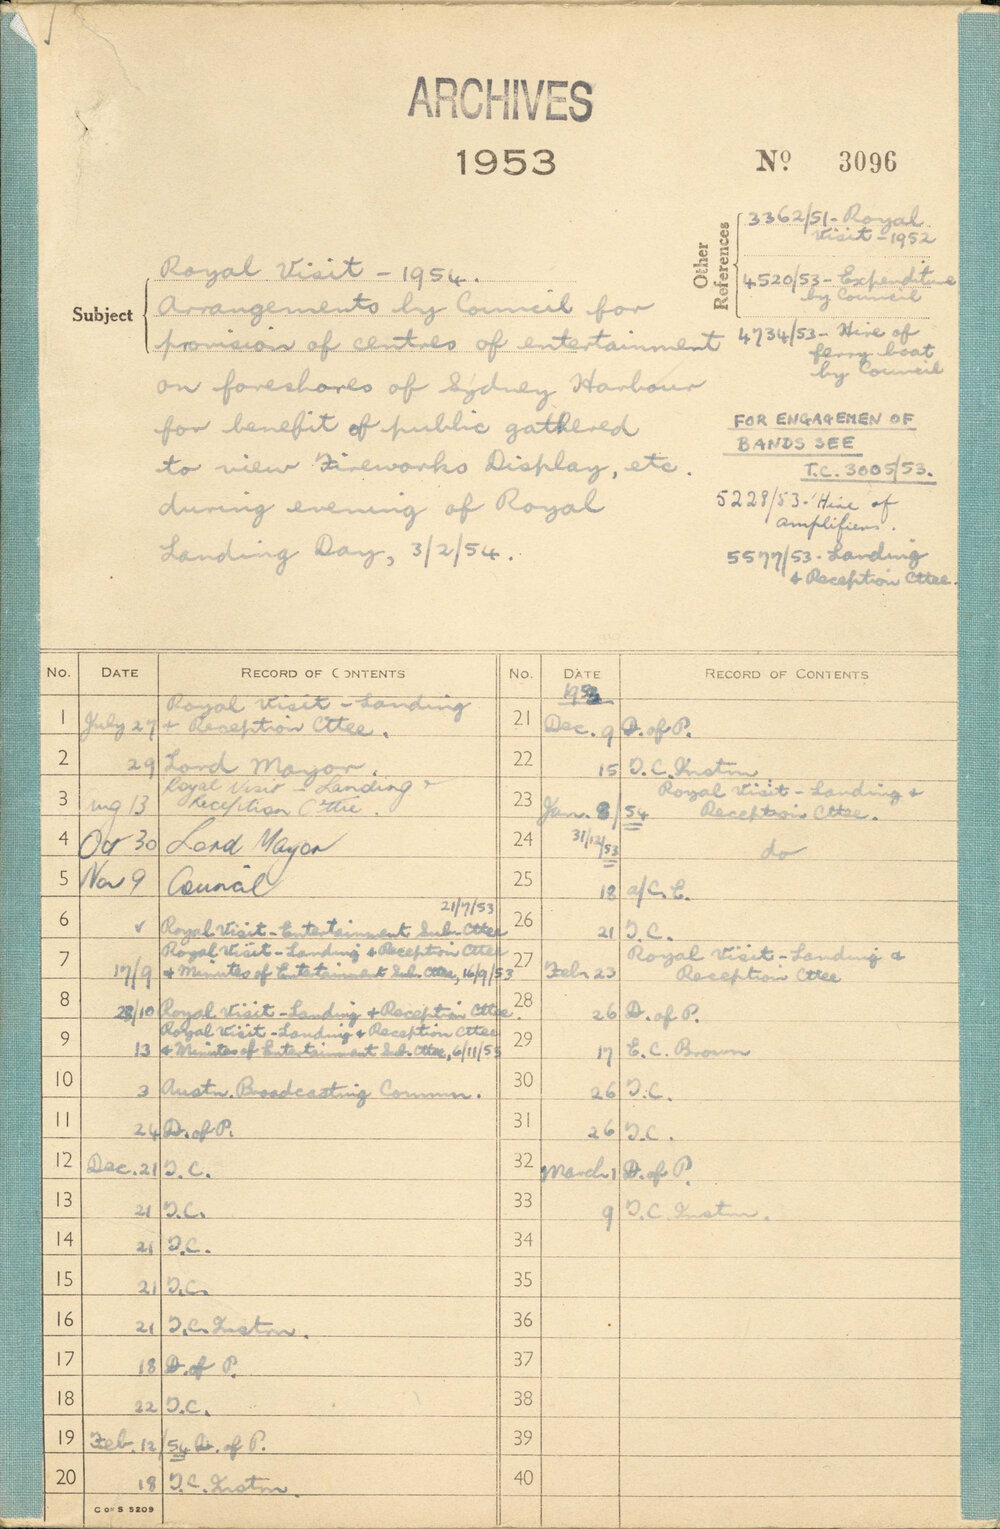 ARCHIVES
1953
No 3096
Subject
Royal Visit - 1954.
Arrangements by Council for
provision of centres of entertainment
on foreshores of Sydney Harbour
for benefit of public gathered
to view Fireworks Display, etc.
during evening of Royal
Landing Day, 3/2/54.
Other References
3362/51 - Royal
Visit - 1952
4520/53 - Expenditure
by Council
4734/53 - Hire of
ferry boat
by Council
FOR ENGAGEMEN OF
BANDS SEE
T.C. 3005/53.
5228/53 - Hire of
amplifiers.
5577/53 - Landing
& Reception Cttee.
No. DATE RECORD OF CONTENTS
1 July 27 Royal Visit - Landing
& Reception Cttee.
2 29 Lord Mayor.
3 Aug 13 Royal Visit - Landing &
Reception Cttee.
4 Oct 30 Lord Mayor
5 Nov 9 Council
6 Royal Visit - Entertainment Sub-Cttee 21/7/53
7 17/9 Royal Visit - Landing & Reception Cttee
& Minutes of Entertainment Sub. Cttee, 16/9/53
8 28/10 Royal Visit - Landing & Reception Cttee.
9 13 Royal Visit - Landing & Reception Cttee
& Minutes of Entertainment Sub. Cttee, 6/11/53
10 3 Austn. Broadcasting Commn.
11 24 D. of P.
12 Dec. 21 T.C.
13 21 T.C.
14 21 T.C.
15 21 T.C.
16 21 T.C. Instn.
17 18 D. of P.
18 22 T.C.
19 Feb. 12/54 D. of P.
20 18 T.C. Instn.
C of S 5209
No. DATE RECORD OF CONTENTS
1953
21 Dec. 9 D. of P.
22 15 T.C. Instn
23 Jan. 8/54 Royal Visit - Landing &
Reception Cttee.
24 31/12/53 do
25 18 a/C.E.
26 21 T.C.
27 Feb 23 Royal Visit - Landing &
Reception Cttee
28 26 D. of P.
29 17 E.C. Brown
30 26 T.C.
31 26 T.C.
32 March 1 D. of P.
33 9 T.C. Instn.
34
35
36
37
38
39
40